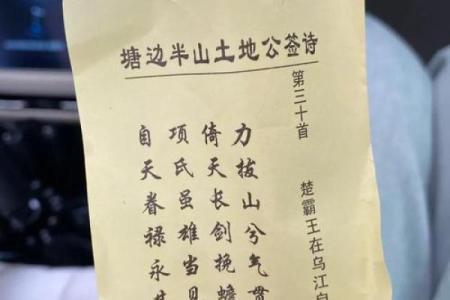 塘边半山土地公签诗
第三十首
楚霸王在乌江自
力拔山兮气贯
倚天长剑挽蟾
项氏虽雄当见
自天眷禄永